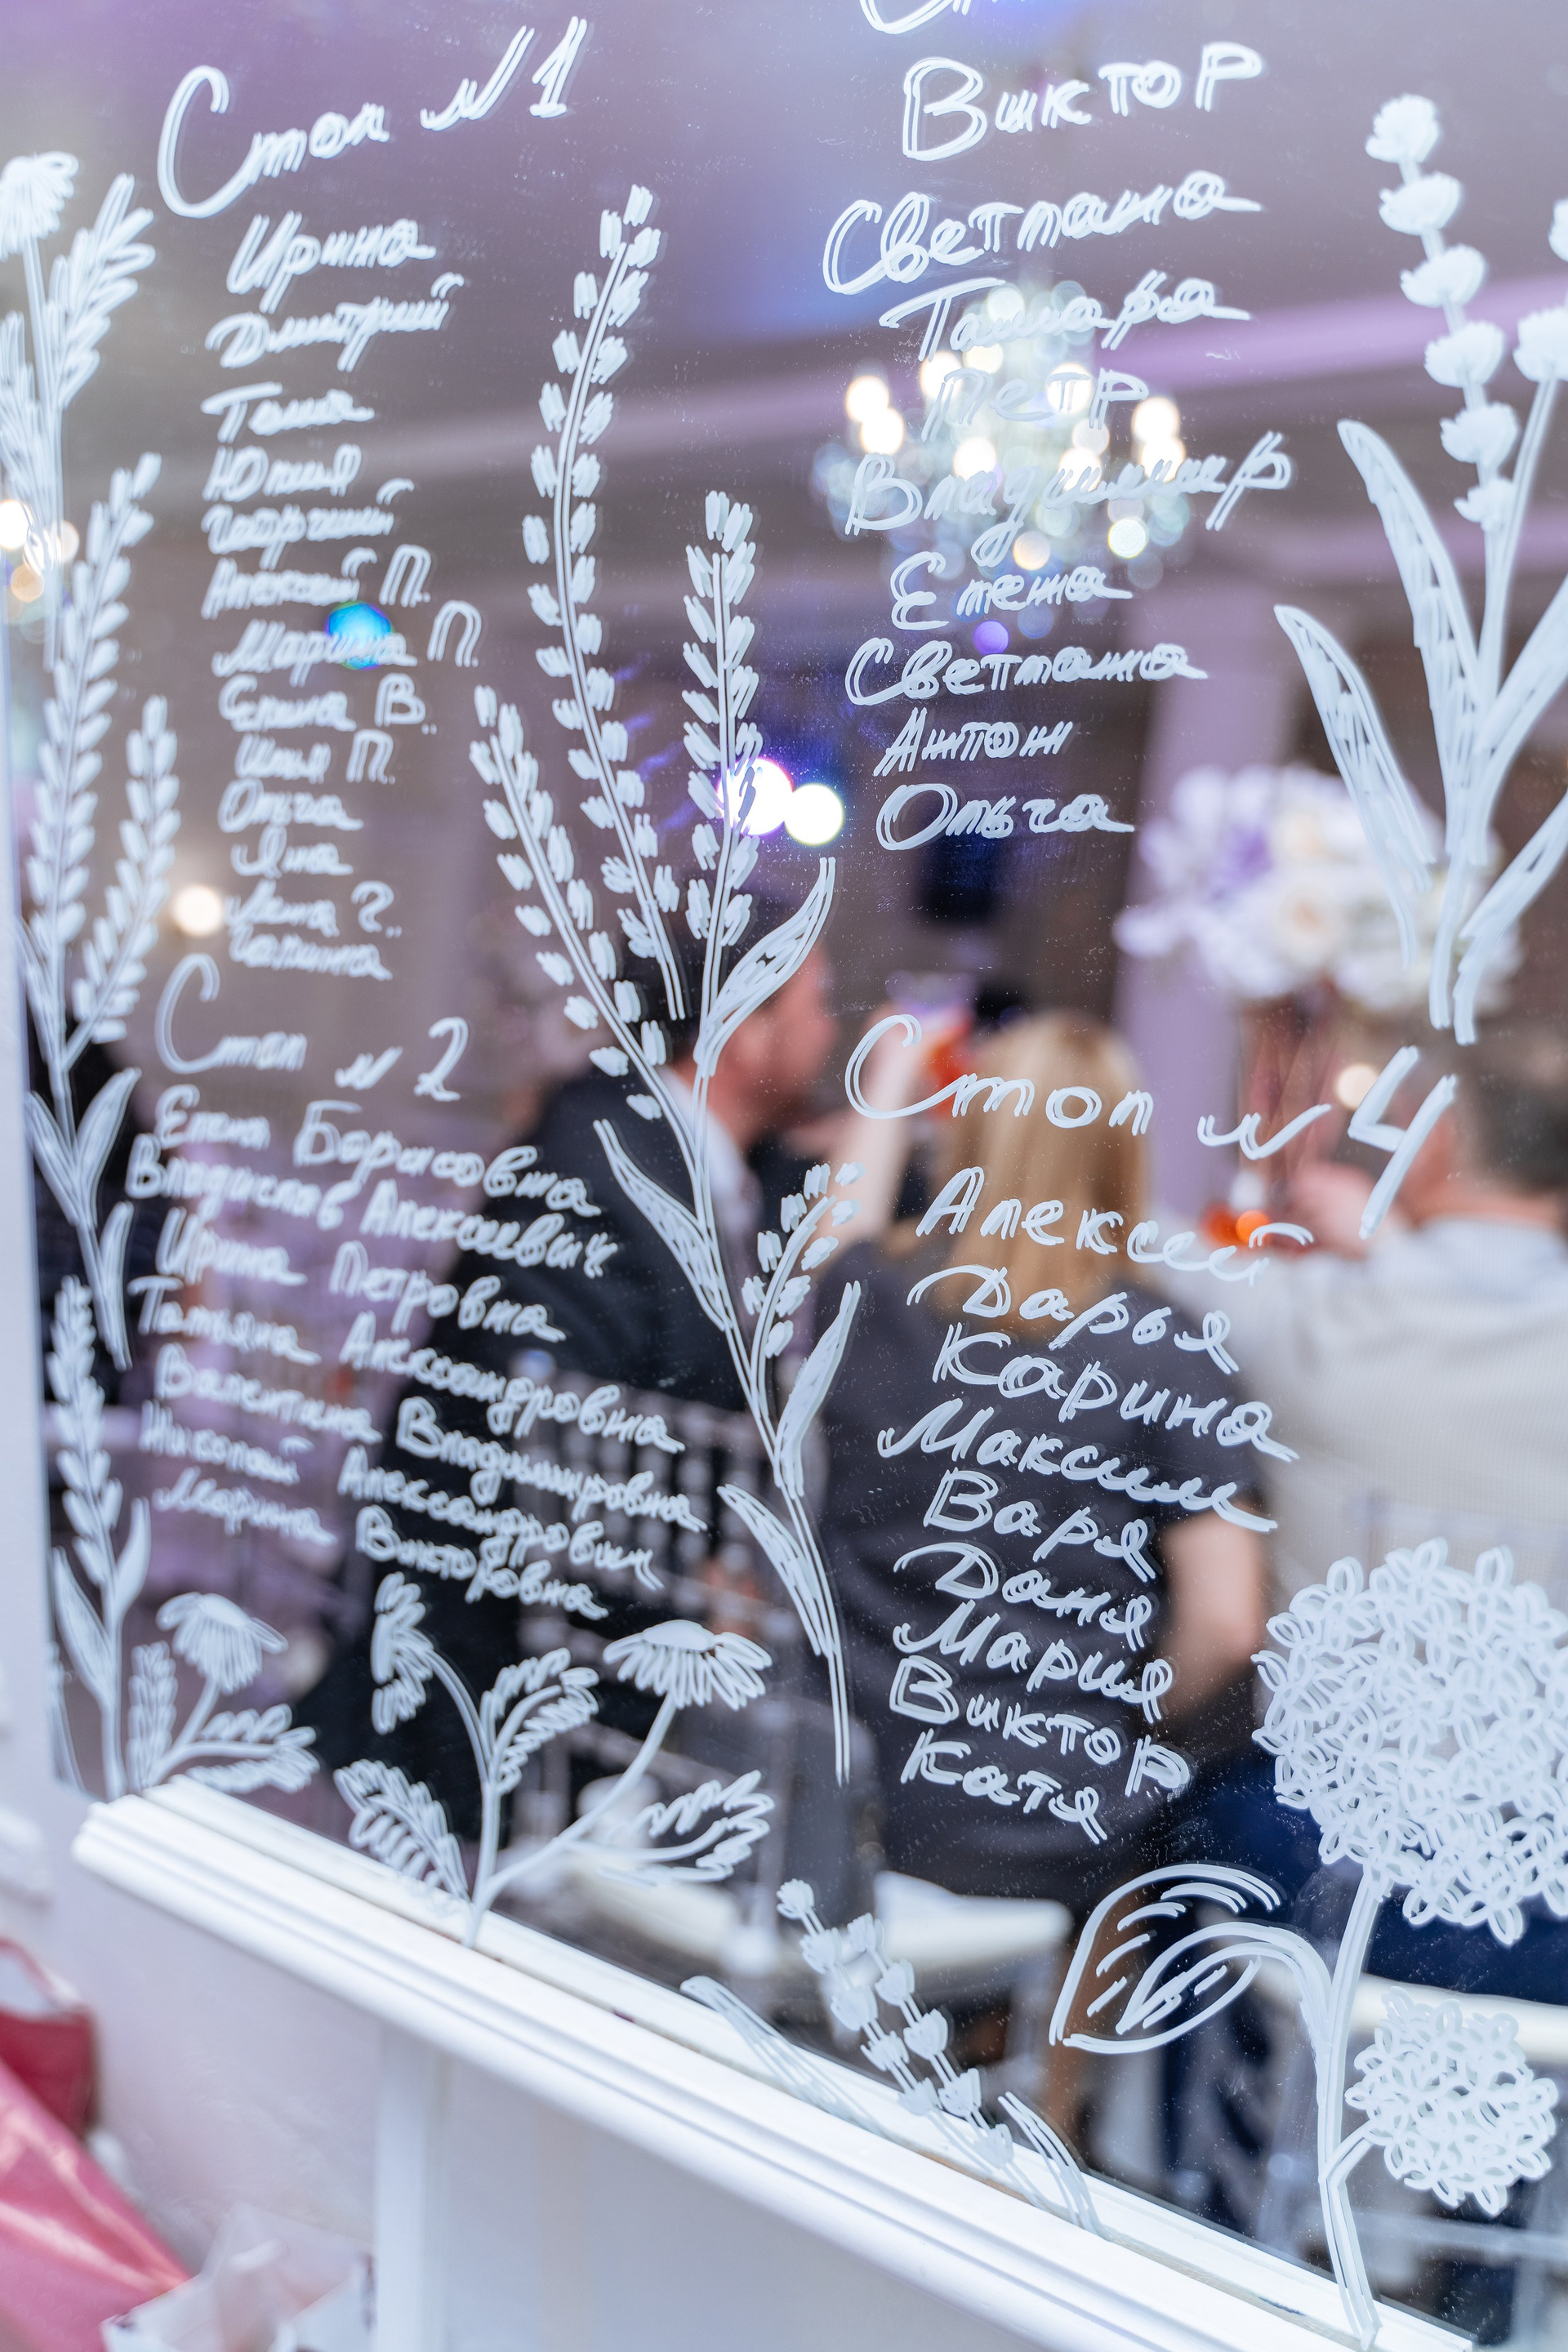 Стол №1
Ирина
Дмитрий
Таня
Юлия
Георгий
Алексей П.
Марина П.
Елена В.
Илья П.
Ольга
Яна
Лена Г.
Галина
Стол №2
Елена Борисовна
Владислав Алексеевич
Ирина Петровна
Татьяна Александровна
Валентина Владимировна
Николай Александрович
Марина Викторовна
Виктор
Светлана
Тамара
Петр
Владимир
Елена
Светлана
Антон
Ольга
Стол №4
Алексей
Дарья
Карина
Максим
Варя
Даня
Мария
Виктор
Катя